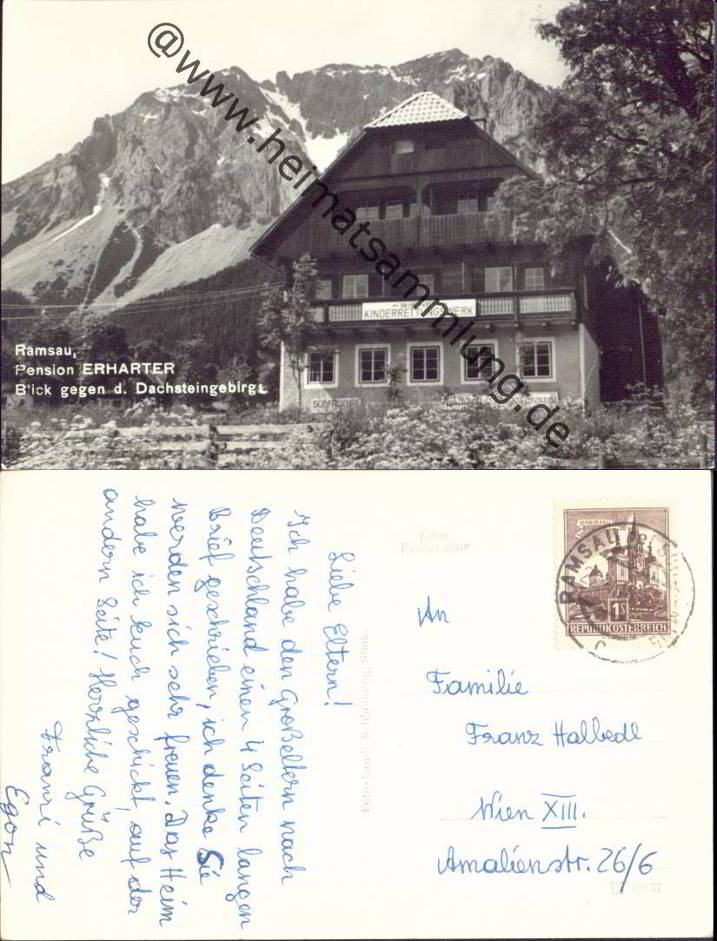 @www.heimatsammlung.de
KINDERRETTUNGSWERK
Ramsau,
Pension ERHARTER
Blick gegen d. Dachsteingebirge
Liebe Eltern!
Ich habe den Großeltern nach
Deutschland einen 4 Seiten langen
Brief geschrieben, ich denke Sie
werden sich sehr freuen. Das Heim
habe ich Euch geschickt, auf der
andern Seite! Herzliche Grüße
Franzi und
Egon
Echte
Photographie
MARIAZELL
1S
REPUBLIK ÖSTERREICH
RAMSAU
An
Familie
Franz Halbedl
Wien XIII.
Amalienstr. 26/6